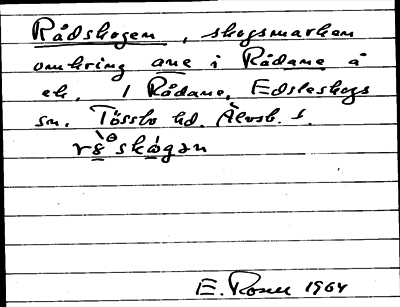 Rådskogen, skogsmarken
omkring ane i Rådane å
ek. 1 Rådane, Edsleskogs
sn. Tössbo hd. Älvsb. l.
skogan
E. Rosell 1964